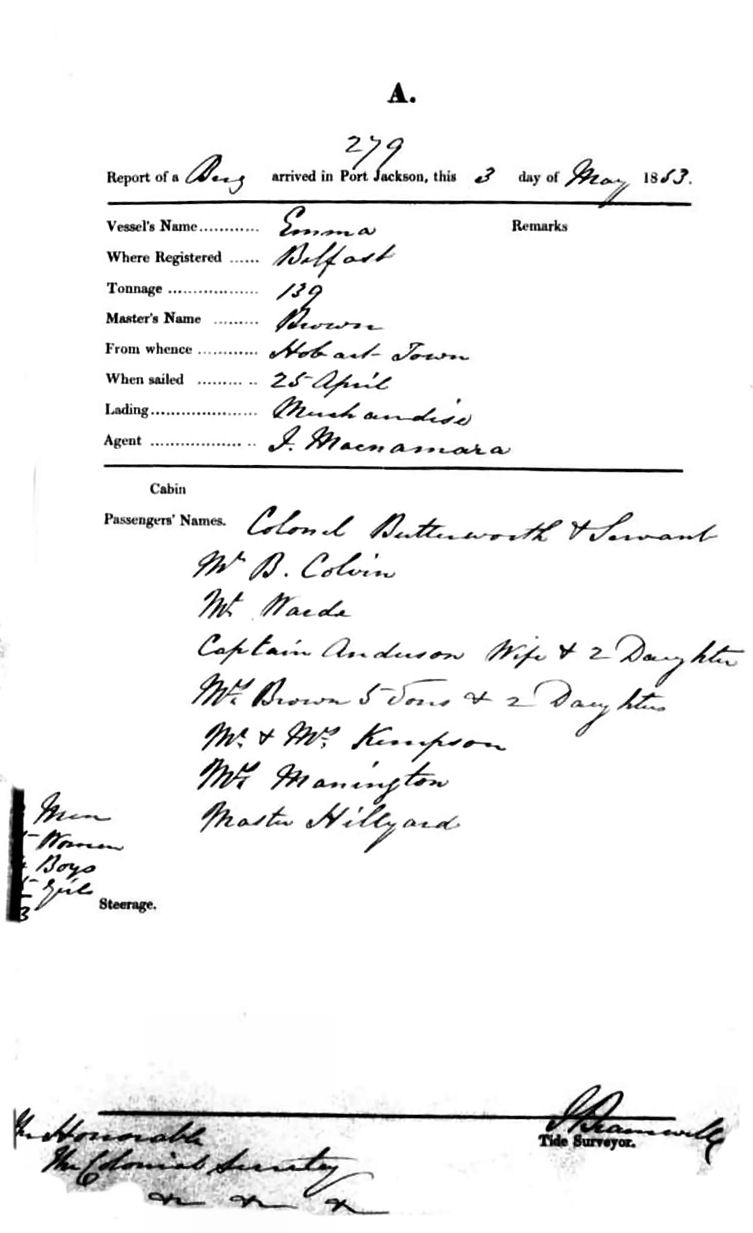 A.
279
Report of a Brig arrived in Port Jackson, this 3 day of May 1853.
Vessel's Name............ Emma Remarks
Where Registered ...... Belfast
Tonnage .................. 139
Master's Name ......... Brown
From whence ............ Hobart Town
When sailed ......... .. 25 April
Lading..................... Merchandise
Agent ................... .. I. Macnamara
Cabin
Passengers' Names. Colonel Butterworth & Servant
Mr B. Colvin
Mr Waede
Captain Anderson Wife & 2 Daughter
Mrs Brown 5 Sons & 2 Daughters
Mr. & Mrs. Kempson
Mrs Manington
Master Hillyard
Men
Women
Boys
Girls
Steerage.
J Bramwell
Tide Surveyor.
The Honorable
The Colonial Secretary